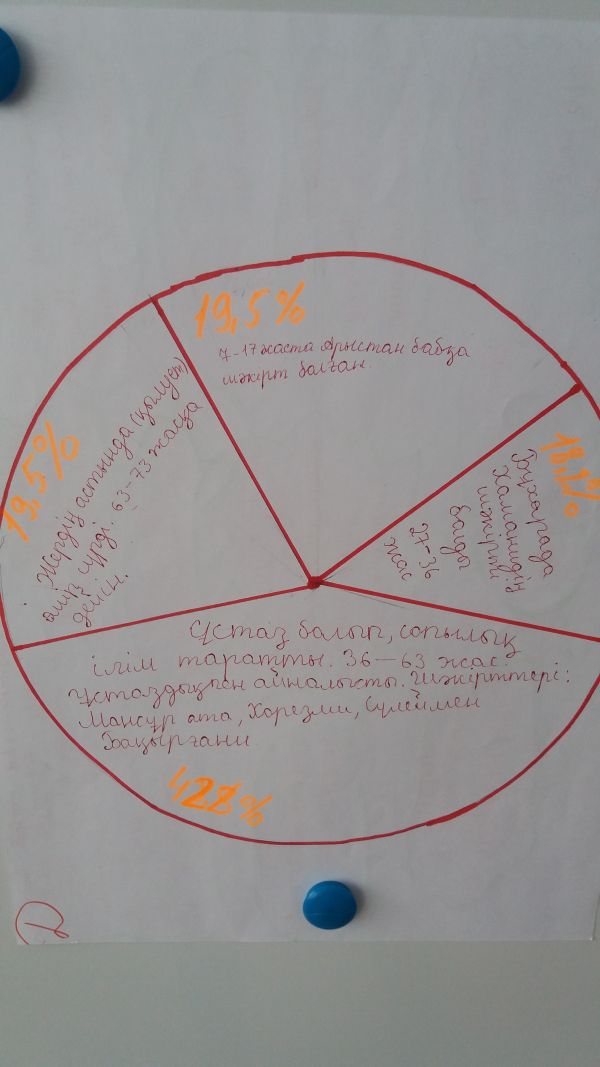 19,5%
7-17 жаста Арыстан бабқа
шәкірт болған.
18,2%
Бұхарада
Хамаидидің
шәкірті
болды
27-36
жас
19,5%
Жердің астында (қылует)
өмір сүрді. 63-73 жасқа
дейін.
Ұстаз болып, сопылық
ілім таратты. 36-63 жас.
Ұстаздықпен айналысты. Шәкірттері:
Мансұр ата, Хорезми, Сүлеймен
Бақырғани.
42%